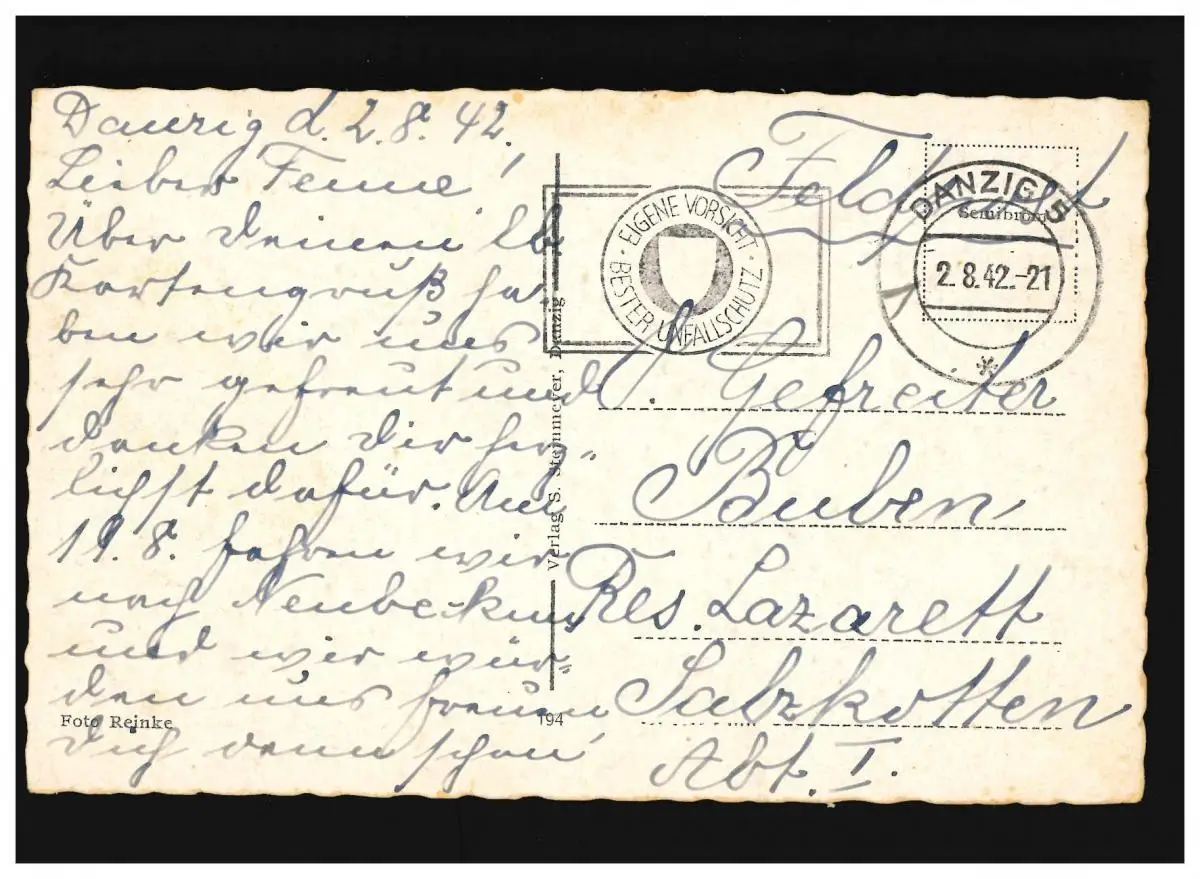 Danzig d. 2.8.42.
Lieber Fenne!
Über Deinen lb.
Kartengruß ha-
ben wir uns
sehr gefreut und
danken Dir herz-
lichst dafür. Am
19.8. fahren wir
nach Neubeckum
und wir wür-
den uns freuen,
Dich dann schon
Foto Reinke
Verlag S. Steinmeyer, Danzig
194
EIGENE VORSICHT · BESTER UNFALLSCHUTZ ·
Feldpost
DANZIG 5
Semibrom
2.8.42.-21
Gefreiter
Büben
Res. Lazarett
Salzkotten
Abt. I.